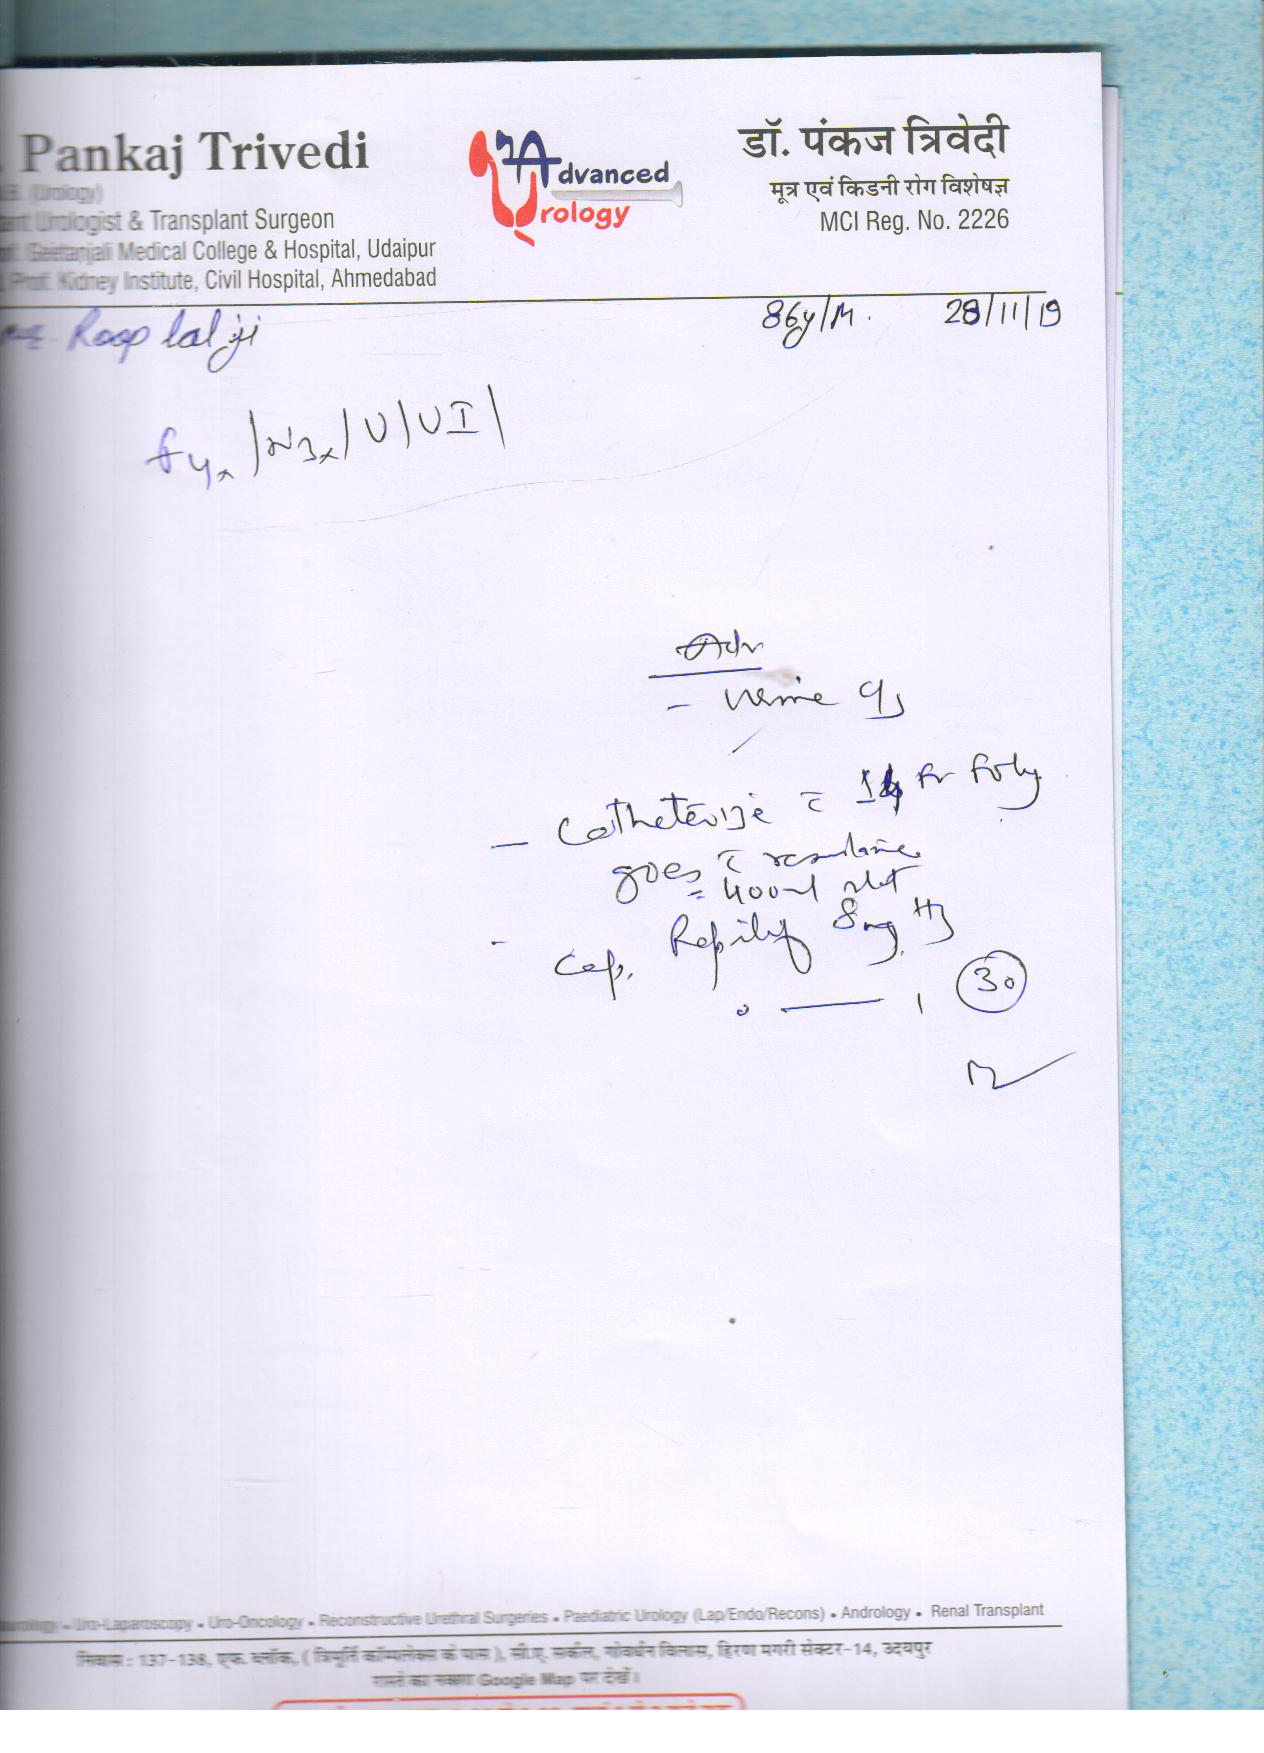 . Pankaj Trivedi
(Urology)
ant Urologist & Transplant Surgeon
Geetanjali Medical College & Hospital, Udaipur
Prof. Kidney Institute, Civil Hospital, Ahmedabad
Advanced
Urology
डॉ. पंकज त्रिवेदी
मूत्र एवं किडनी रोग विशेषज्ञ
MCI Reg. No. 2226
Roop lal ji 86y/M. 28/11/19
f 4x / N 3x / U / UI /
Adv
- Urine
- Catheterize c̄ 14 fr foly
goes c̄
= 400ml
- Cap. 8mg
0 —— 1 (30)
Uro-Laparoscopy • Uro-Oncology • Reconstructive Urethral Surgeries • Paediatric Urology (Lap/Endo/Recons) • Andrology • Renal Transplant
निवास : 137-138, एफ. ब्लॉक, ( त्रिमूर्ति कॉम्पलेक्स के पास ), सी.ए. सर्कल, गोवर्धन विलास, हिरण मगरी सेक्टर-14, उदयपुर
रास्ते का नक्शा Google Map पर देखें।